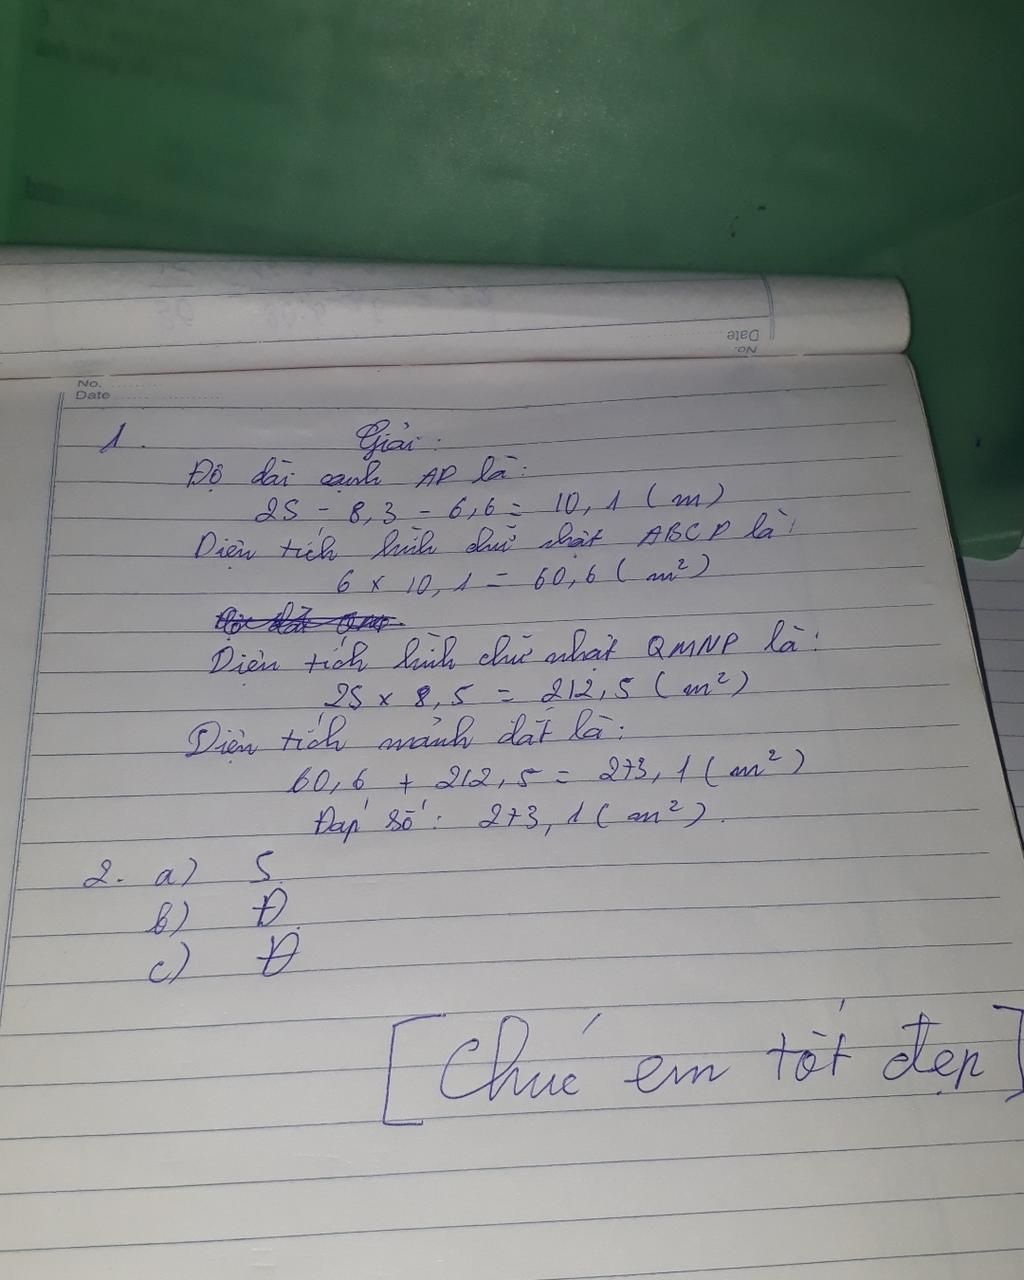 No.
Date
No.
Date
1. Giải:
Độ dài cạnh AD là:
25 - 8,3 - 6,6 = 10,1 (m)
Diện tích hình chữ nhật ABCD là:
6 x 10,1 = 60,6 (m²)
Diện tích hình chữ nhật QMNP là:
25 x 8,5 = 212,5 (m²)
Diện tích mảnh đất là:
60,6 + 212,5 = 273,1 (m²)
Đáp số: 273,1 (m²).
2. a) S
b) Đ
c) Đ
[Chúc em tốt đẹp]